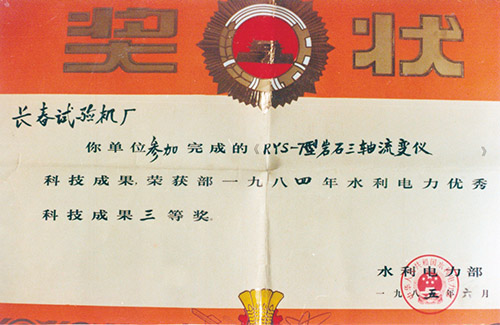 奖状
长春试验机厂
你单位参加完成的《RYS-7型岩石三轴流变仪》
科技成果,荣获部一九八四年水利电力优秀
科技成果三等奖.
水利电力部
一九八五年六月